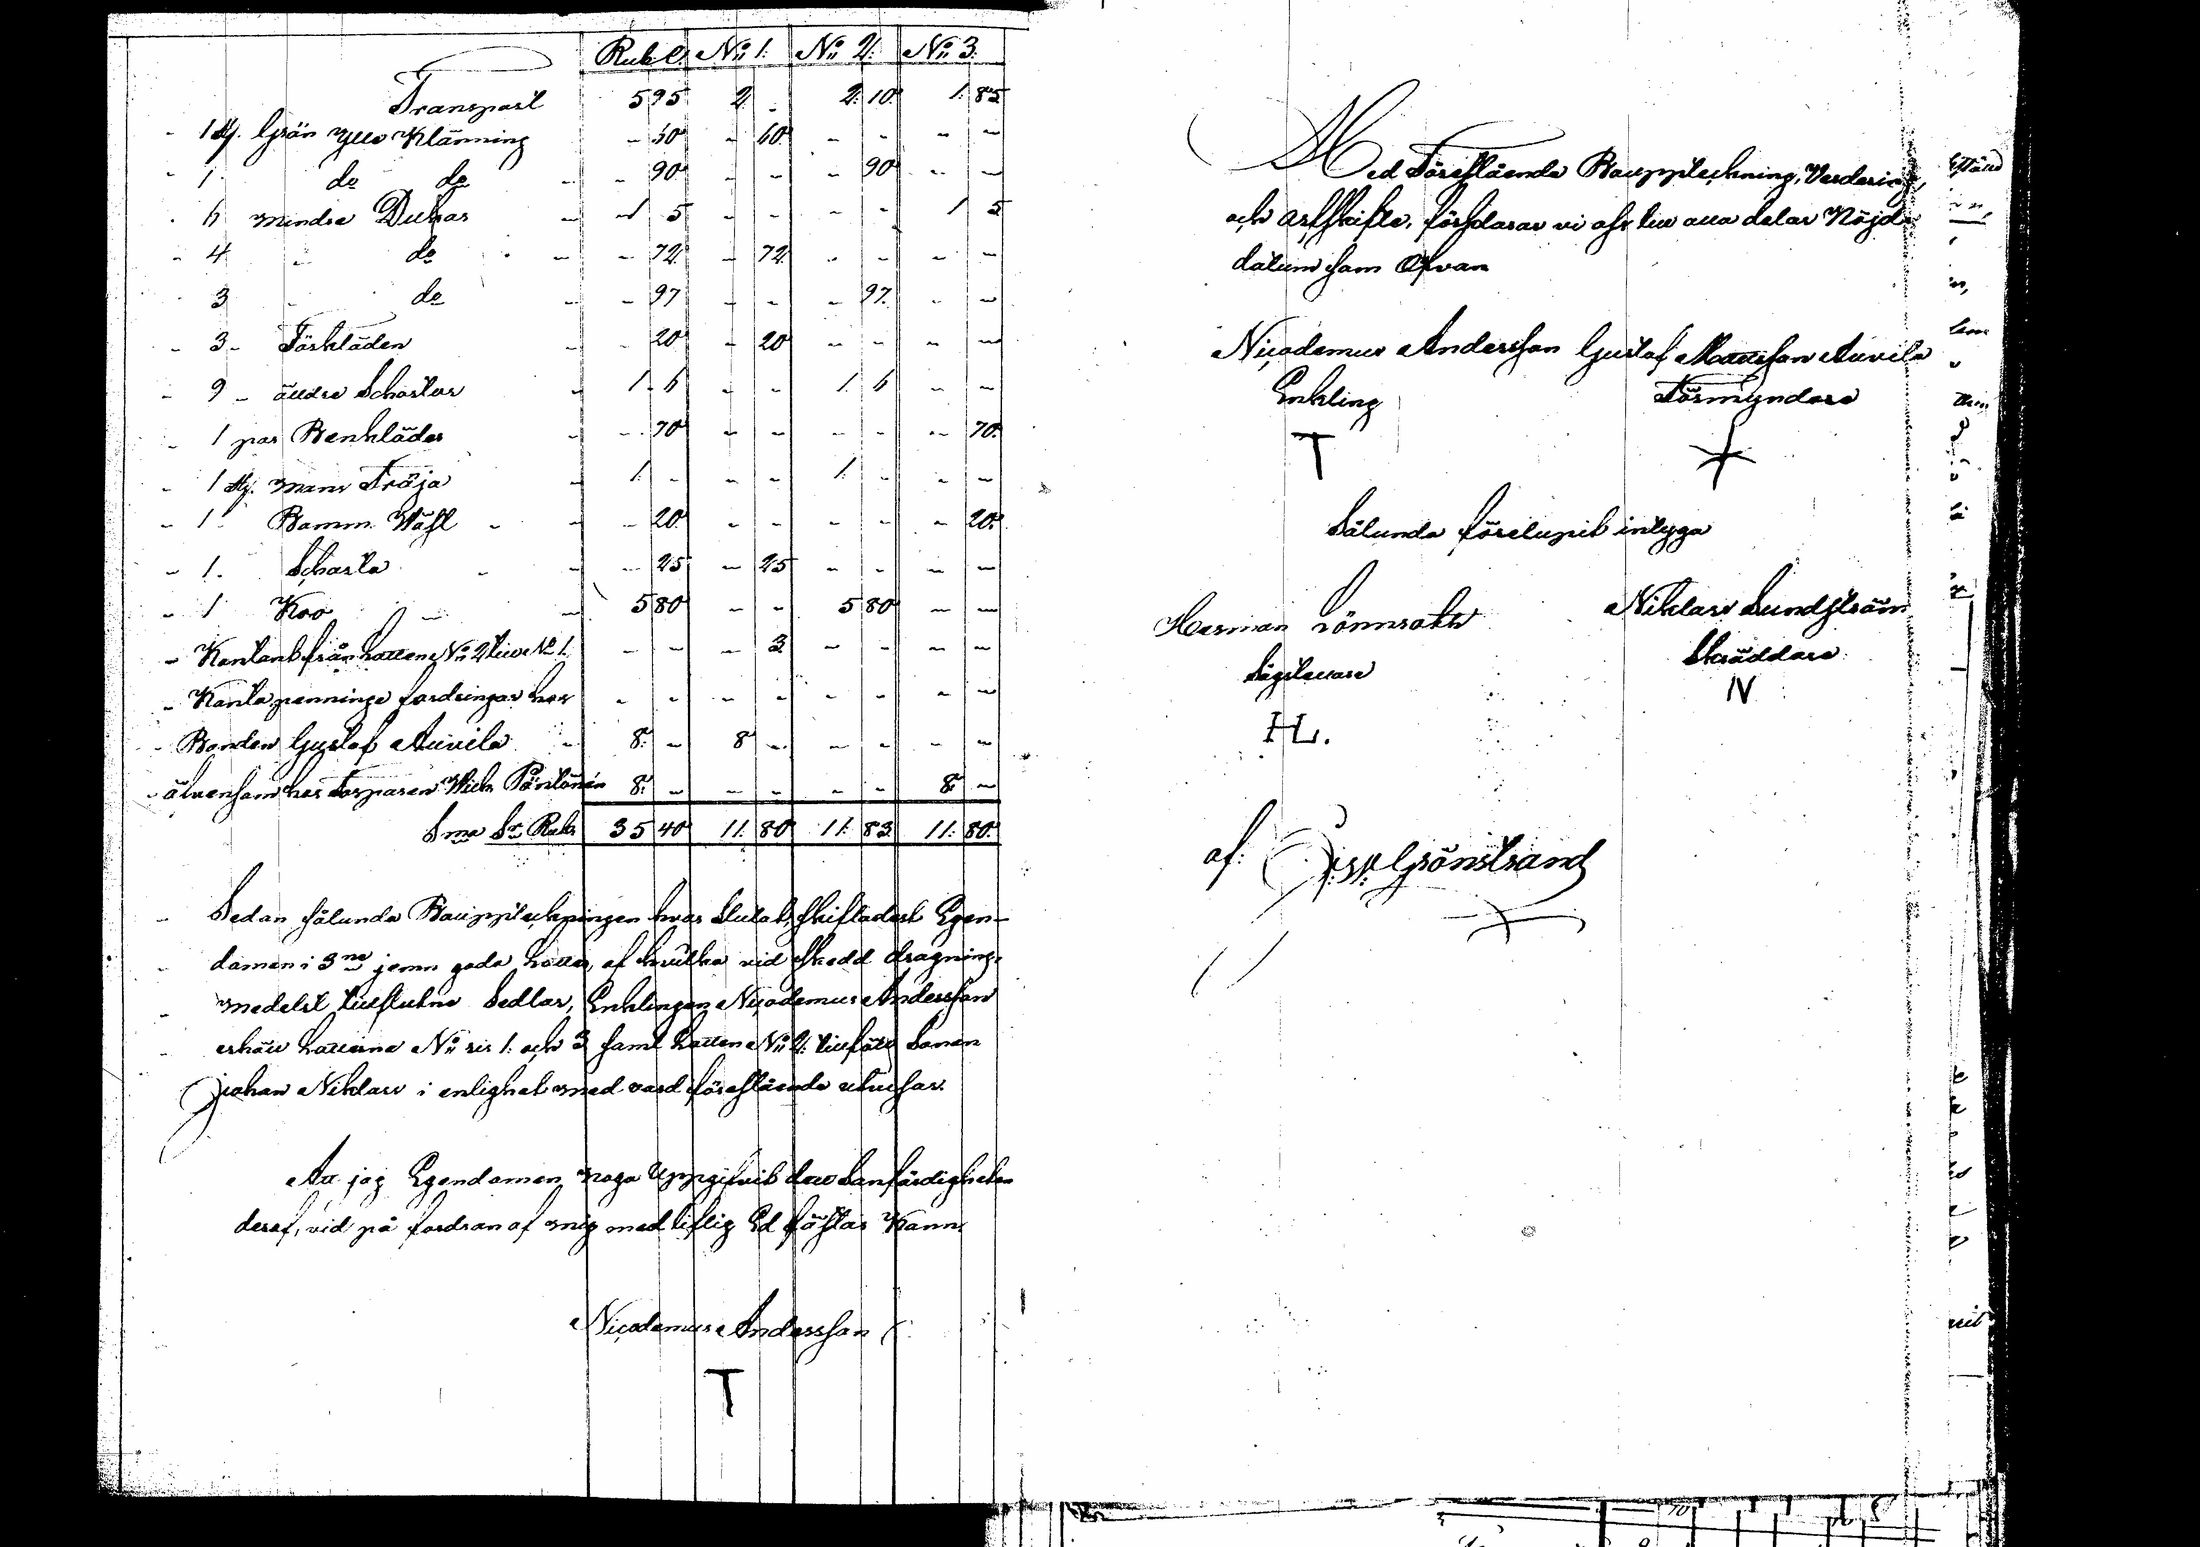 Rub C. No 1: No 2: No 3:
Transport 5 95 2 - 2: 10 1: 85
- 1 st. Grön Ylle Klänning - 60 - 60 - - - -
- 1 do do - 90 - - - 90 - -
- 6 mindre Dukar 1 5 - - - - 1 5
- 4 - do - 72 - 72 - - - -
3 - do - 97 - - - 97 - -
- 3 - Förkläden - 20 - 20 - - - -
- 9 - äldre Schartar 1 - 6 - - 1 6 - -
- 1 par Benkläder - 70 - - - - - 70
- 1 st. mans Tröja 1 - - - 1 - - -
- 1 - Bomm. Wäst - 20 - - - - - 20
- 1. Scharta - 25 - 25 - - - -
- 1 Koo 5 80 - - 5 80 - -
- Kontant från Lotten No 2 till No 1. - - - 3 - - - -
- Konta penninge fordringar hos - - - - - - - -
- Bonden Gustaf Auvila 8: - 8 - - - - -
- äfvensom hos Torparen Wilh Pöntänen 8: - - - - - 8 -
Sma Sr Rub 35 40 11: 80 11: 83 11: 80
Sedan sålunda Bouppteckningen hvar Slutat, skiftadest Egen-
domen i 3ne jemn goda Lotter, af hvilka vid skedd dragning,
medelst tillslutne Sedlar, Enklingen Nicodemus Andersson
erhöll Lotterne No ris 1. och 3 samt Lotten No 2: tillföll Sonen
Johan Niklas i enlighet med vard föreslående utvisar.
Att jag Egendomen noga Uppgifvit det Sanfärdigheten
deraf, vid på fordran af mig med liflig Ed fästas Kann.
Nicodemus Andersson
T
Med Föreslående Bouppteckning, Värdering,
och arfskifte, förklarar vi oss till alla delar Nöjde
datum som Ofvan
Nicodemus Andersson Gustaf Mattsson Auvila
Enkling Förmyndare
T
Sålunda förelupit intyga
Herman Lönnroth Niklas Lundström
Skräddare
H L. IV
af: Grönstrand